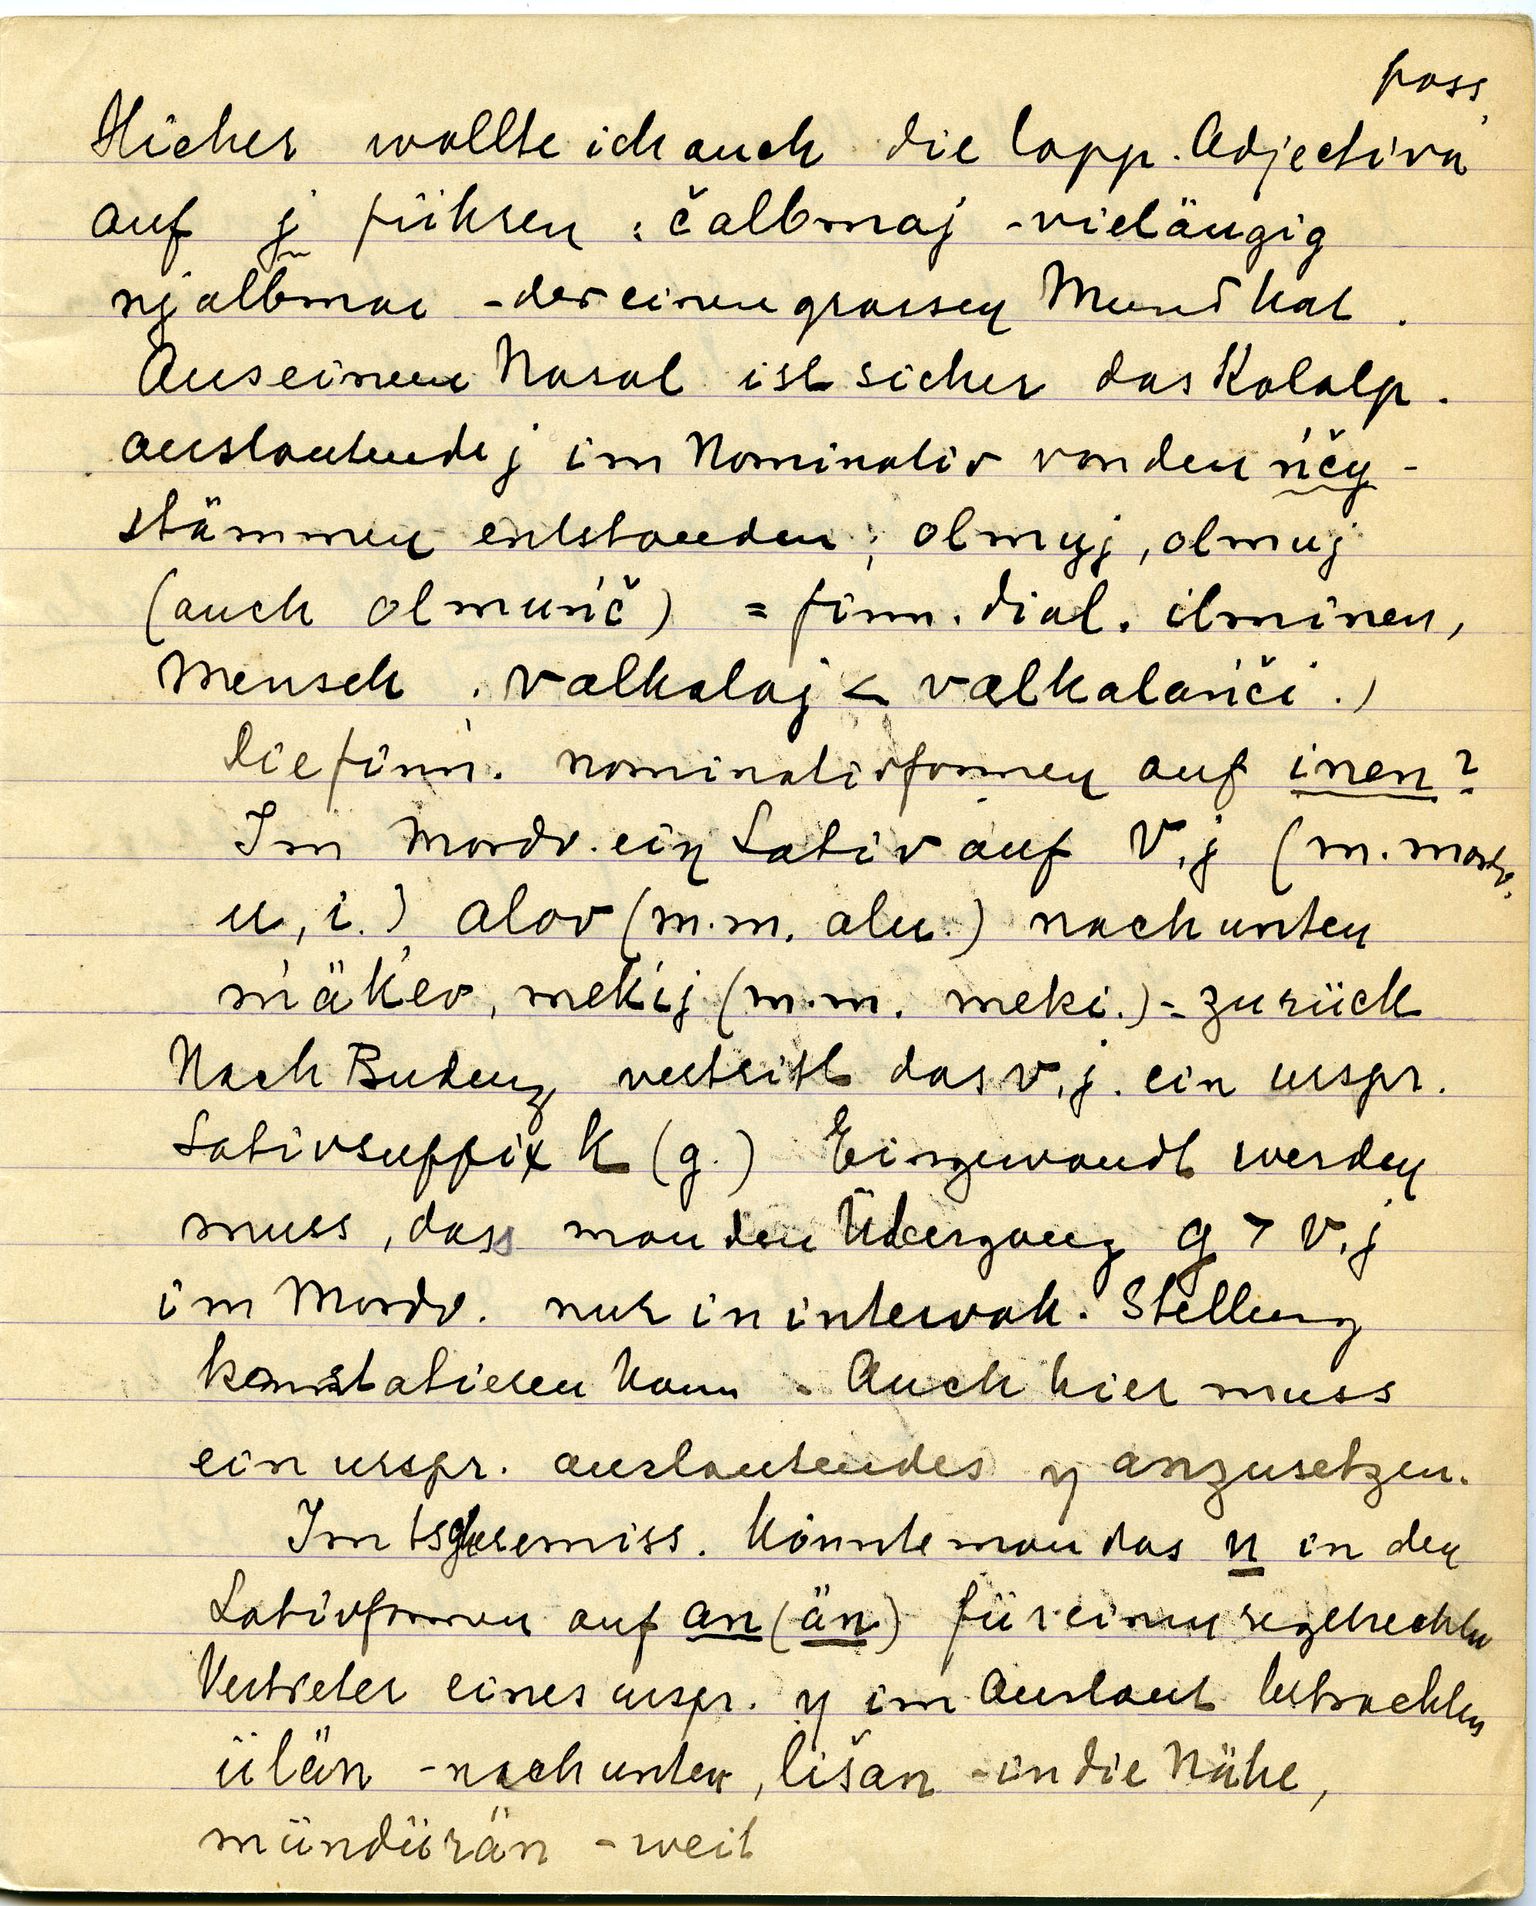 poss.
Hieher wollte ich auch die lapp. Adjectiva
auf j führen : čalbmaj - vieläugig
njalbmai - der einen grossen Mund hat.
Aus einem Nasal ist sicher das Kolalp.
auslautende j im Nominativ von den ńčη -
stämmen entstanden ; olmyj, olmuj
(auch olmuńč) = finn. dial. ilminen,
Mensch . valkalaj < valkalańči .)
Die finn. nominativformen auf inen?
Im Mordv. ein Lativ auf V, j (m. mordv.
u, i.) alov (m.m. alu.) nach unten
ḿäḱev, mekij (m.m. meki.) - zurück
Nach Budenz vertritt das v, j. ein urspr.
Lativsuffix k (g.) Eingewandt werden
muss, dass man den Übergang g > v, j
im Mordv. nur in intervok. Stellung
konstatieren kann. Auch hier muss
ein urspr. auslautendes η anzusetzen.
Im tscheremiss. könnte man das n in den
Lativformen auf an (än) für einen regelrechten
Vertreter eines urspr. η im Auslaut betrachten
ülän - nach unten, lišan - in die Nähe,
mündürän - weit